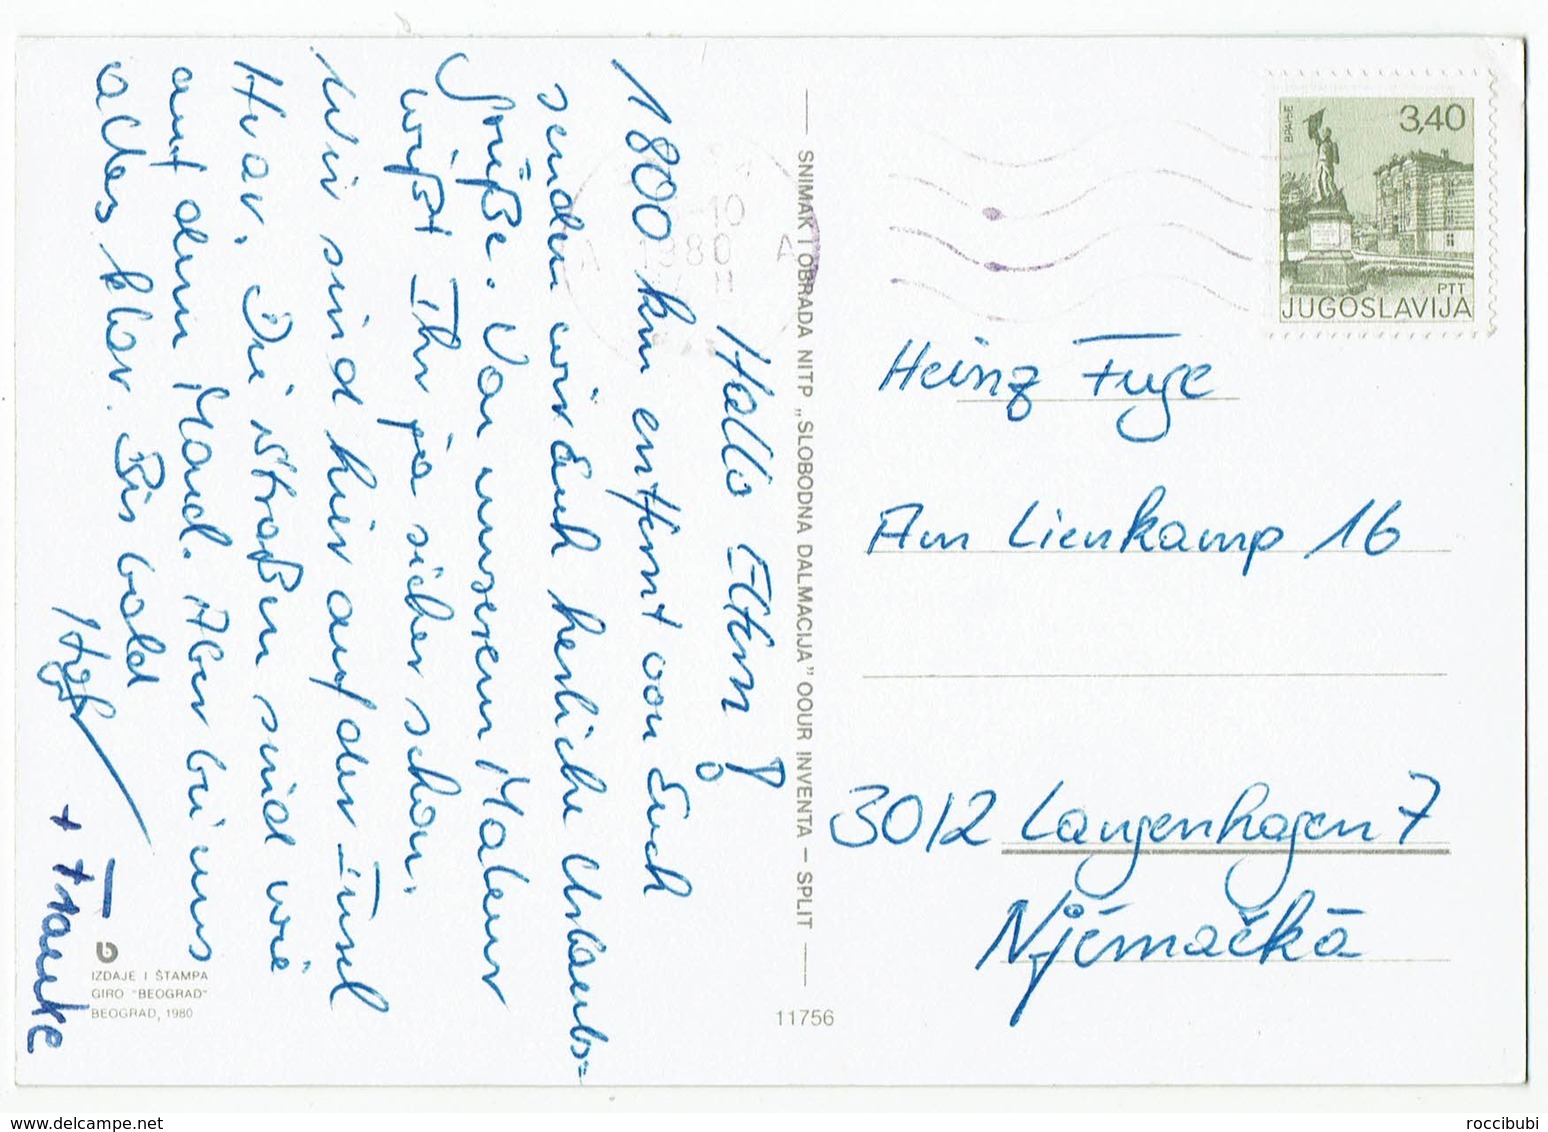 Hallo Eltern!
1800 km entfernt von Euch
senden wir Euch herzliche Urlaubs=
Grüße. Von unserem Maleur
wißt Ihr ja sicher schon.
Wir sind hier auf der Insel
Hvar. Die Straßen sind wie
auf dem Mond. Aber bei uns
alles klar. Bis bald
+ Frauke
IZDAJE I ŠTAMPA
GIRO "BEOGRAD"
BEOGRAD, 1980
SNIMAK I OBRADA NITP „SLOBODNA DALMACIJA" OOUR INVENTA – SPLIT
11756
ВРАЊЕ
3,40
PTT
JUGOSLAVIJA
Heinz Fuge
Am Lienkamp 16
3012 Langenhagen 7
Njemačka
roccibubi